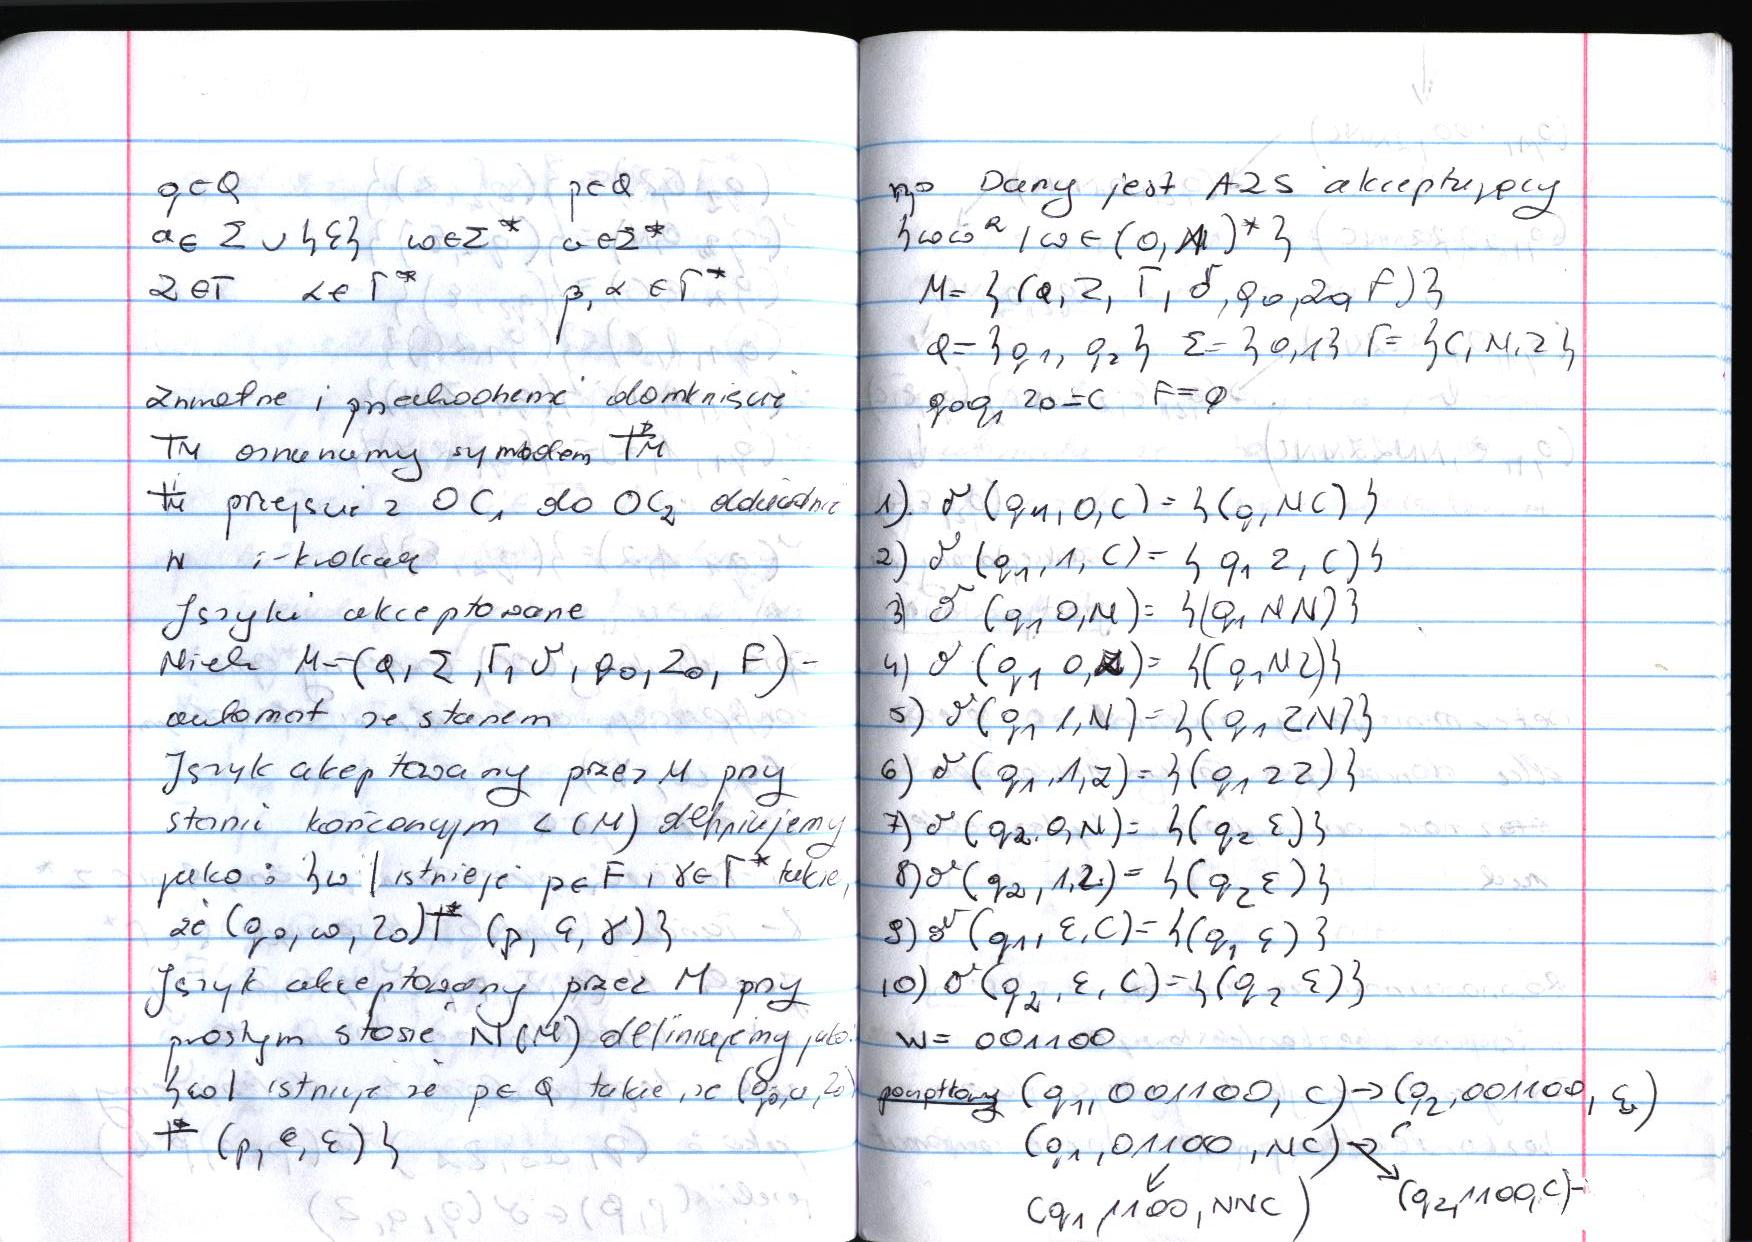 q∈Q p∈Q
a∈ Σ ∪ {ε} ω∈Σ* ω∈Σ*
Z∈Γ α∈Γ* β, α ∈Γ*
Zwrotne i przechodnie domknięcie
TM oznaczamy symbolem T*M
przejście z OC1 do OC2 dokładnie
w i-krokach
Języki akceptowane
Niech M=(Q, Σ, Γ, δ, q0, Z0, F) -
automat ze stosem
Język akceptowany przez M przy
stanie końcowym L(M) definiujemy
jako: {ω | istnieje p∈F i γ∈Γ* takie,
że (q0, ω, Z0) ⊢* (p, ε, γ)}
Język akceptowany przez M przy
prostym stosie N(M) definiujemy jako:
{ω| istnieje że p∈Q takie, że (q0, ω, Z0)
⊢* (p, ε, ε)}
np Dany jest AZS akceptujący
{ωω^R | ω∈(0,1)*}
M= {(Q, Σ, Γ, δ, q0, Z0, F)}
Q={q1, q2} Σ={0,1} Γ={C, N, Z}
q0 q1 Z0=C F=φ
1) δ (q1, 0, C) = {(q, NC)}
2) δ (q1, 1, C) = { q1 Z, C)}
3) δ (q1 0, N) = {(q1 NN)}
4) δ (q1 0, Z) = {(q1 NZ)}
5) δ (q1 1, N) = {(q1 ZN)}
6) δ (q1, 1, Z) = {(q1 ZZ)}
7) δ (q2, 0, N) = {(q2 ε)}
8) δ (q2, 1, Z) = {(q2 ε)}
9) δ (q1, ε, C) = {(q, ε)}
10) δ (q2, ε, C) = {(q2 ε)}
W= 001100
(q1, 001100, C) → (q2, 001100, ε)
(q1, 01100, NC) →
(q1, 1100, NNC) (q2, 1100, C)-